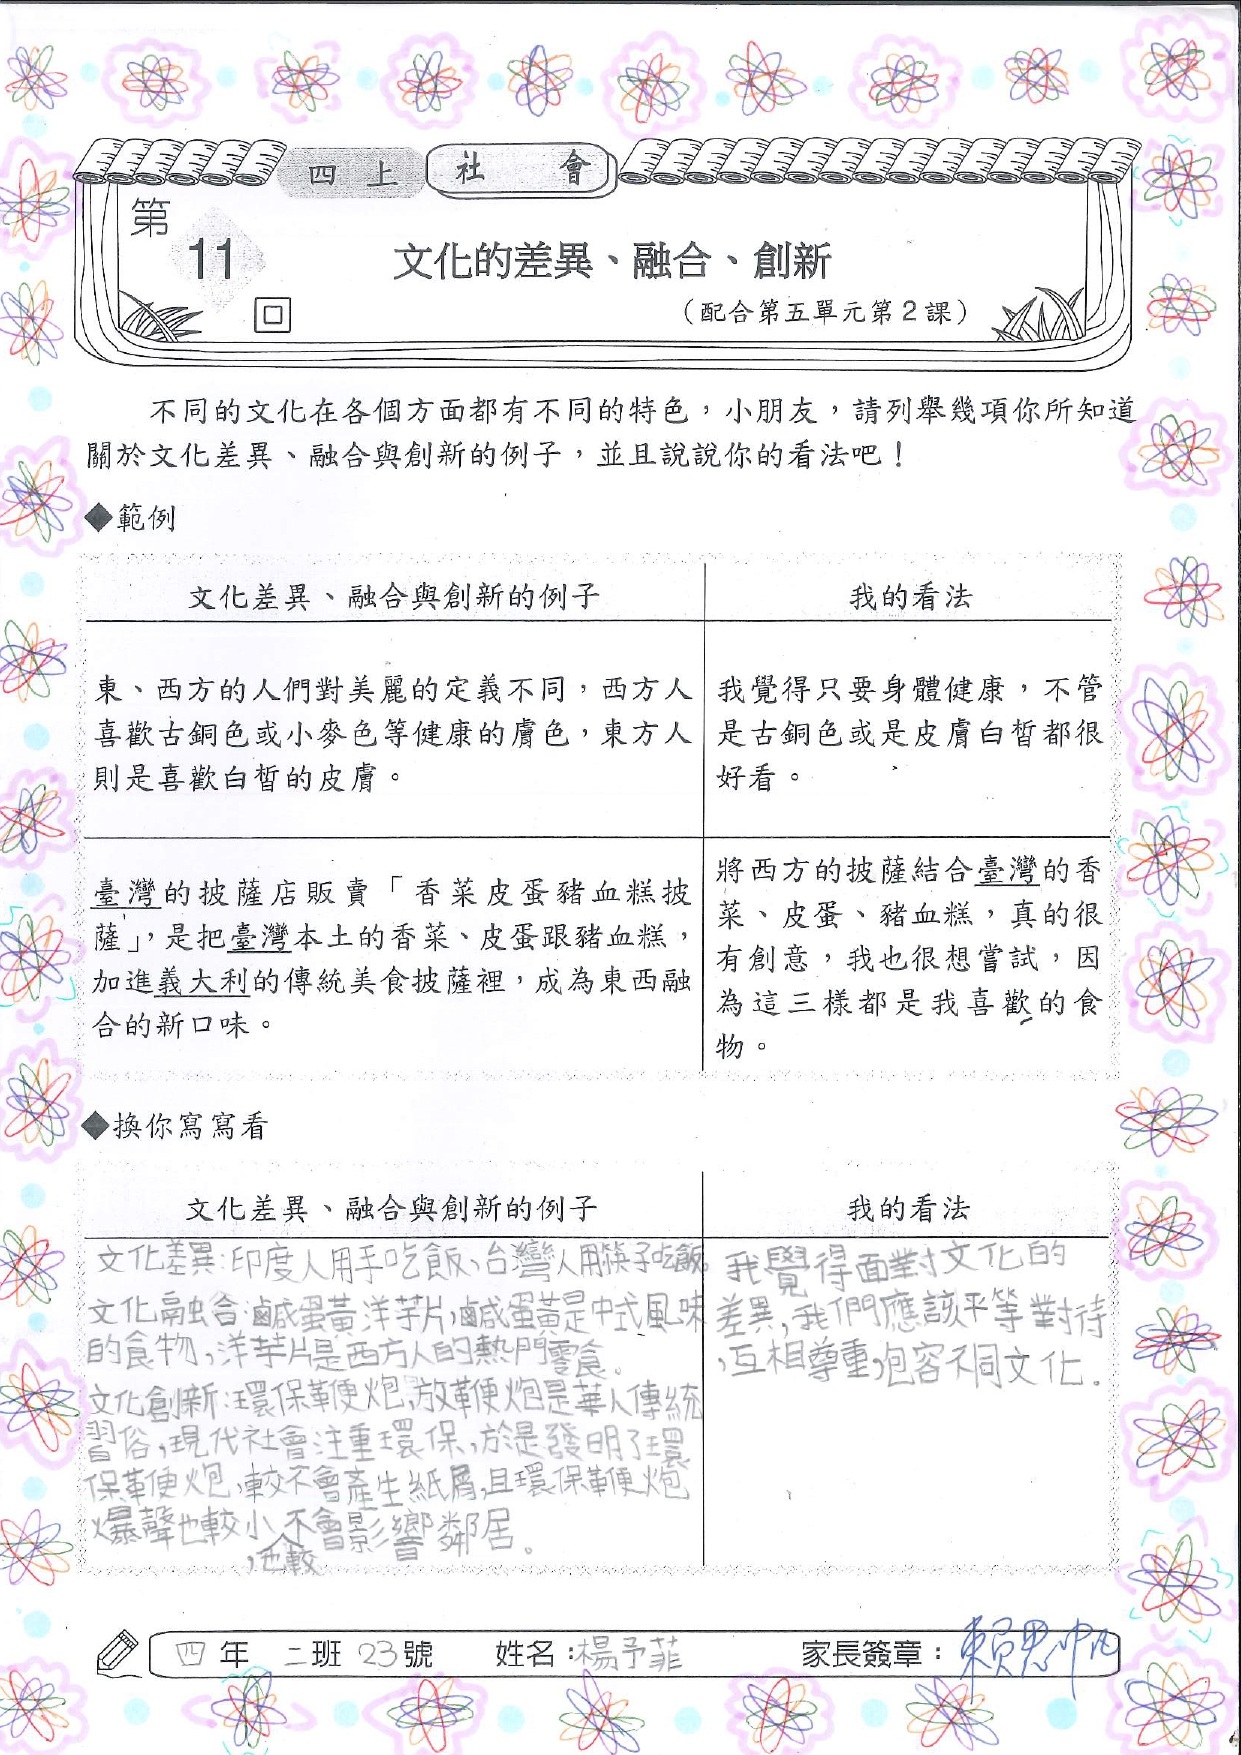 四上 社會
第11回
文化的差異、融合、創新
（配合第五單元第2課）
不同的文化在各個方面都有不同的特色，小朋友，請列舉幾項你所知道
關於文化差異、融合與創新的例子，並且說說你的看法吧！
◆範例
文化差異、融合與創新的例子
我的看法
東、西方的人們對美麗的定義不同，西方人
喜歡古銅色或小麥色等健康的膚色，東方人
則是喜歡白皙的皮膚。
我覺得只要身體健康，不管
是古銅色或是皮膚白皙都很
好看。
臺灣的披薩店販賣「香菜皮蛋豬血糕披
薩」，是把臺灣本土的香菜、皮蛋跟豬血糕，
加進義大利的傳統美食披薩裡，成為東西融
合的新口味。
將西方的披薩結合臺灣的香
菜、皮蛋、豬血糕，真的很
有創意，我也很想嘗試，因
為這三樣都是我喜歡的食
物。
◆換你寫寫看
文化差異、融合與創新的例子
我的看法
文化差異：印度人用手吃飯、台灣人用筷子吃飯。
文化融合：鹹蛋黃洋芋片，鹹蛋黃是中式風味
的食物，洋芋片是西方人的熱門零食。
文化創新：環保鞭炮，放鞭炮是華人傳統
習俗，現代社會注重環保，於是發明了環
保鞭炮，較不會產生紙屑，且環保鞭炮
爆聲也較小，也較不會影響鄰居。
我覺得面對文化的
差異，我們應該平等對待
，互相尊重，包容不同文化．
四年 二班 23號 姓名：楊予菲 家長簽章：賴思帆